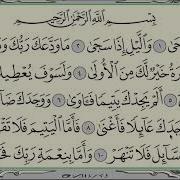 بِسْمِ ٱللَّهِ ٱلرَّحْمَٰنِ ٱلرَّحِيمِ
حَىٰ ١ وَٱلَّيْلِ إِذَا سَجَىٰ ٢ مَا وَدَّعَكَ رَبُّكَ وَ
رَةُ خَيْرٌ لَّكَ مِنَ ٱلْأُولَىٰ ٤ وَلَسَوْفَ يُعْطِيـ
أَلَمْ يَجِدْكَ يَتِيمًا فَـَٔاوَىٰ ٦ وَوَجَدَكَ ضَآ
وَوَجَدَكَ عَآئِلًا فَأَغْنَىٰ ٨ فَأَمَّا ٱلْيَتِيمَ فَلَا تَقْـ
ٱلسَّآئِلَ فَلَا تَنْهَرْ ١٠ وَأَمَّا بِنِعْمَةِ رَبِّكَ فَحَـ